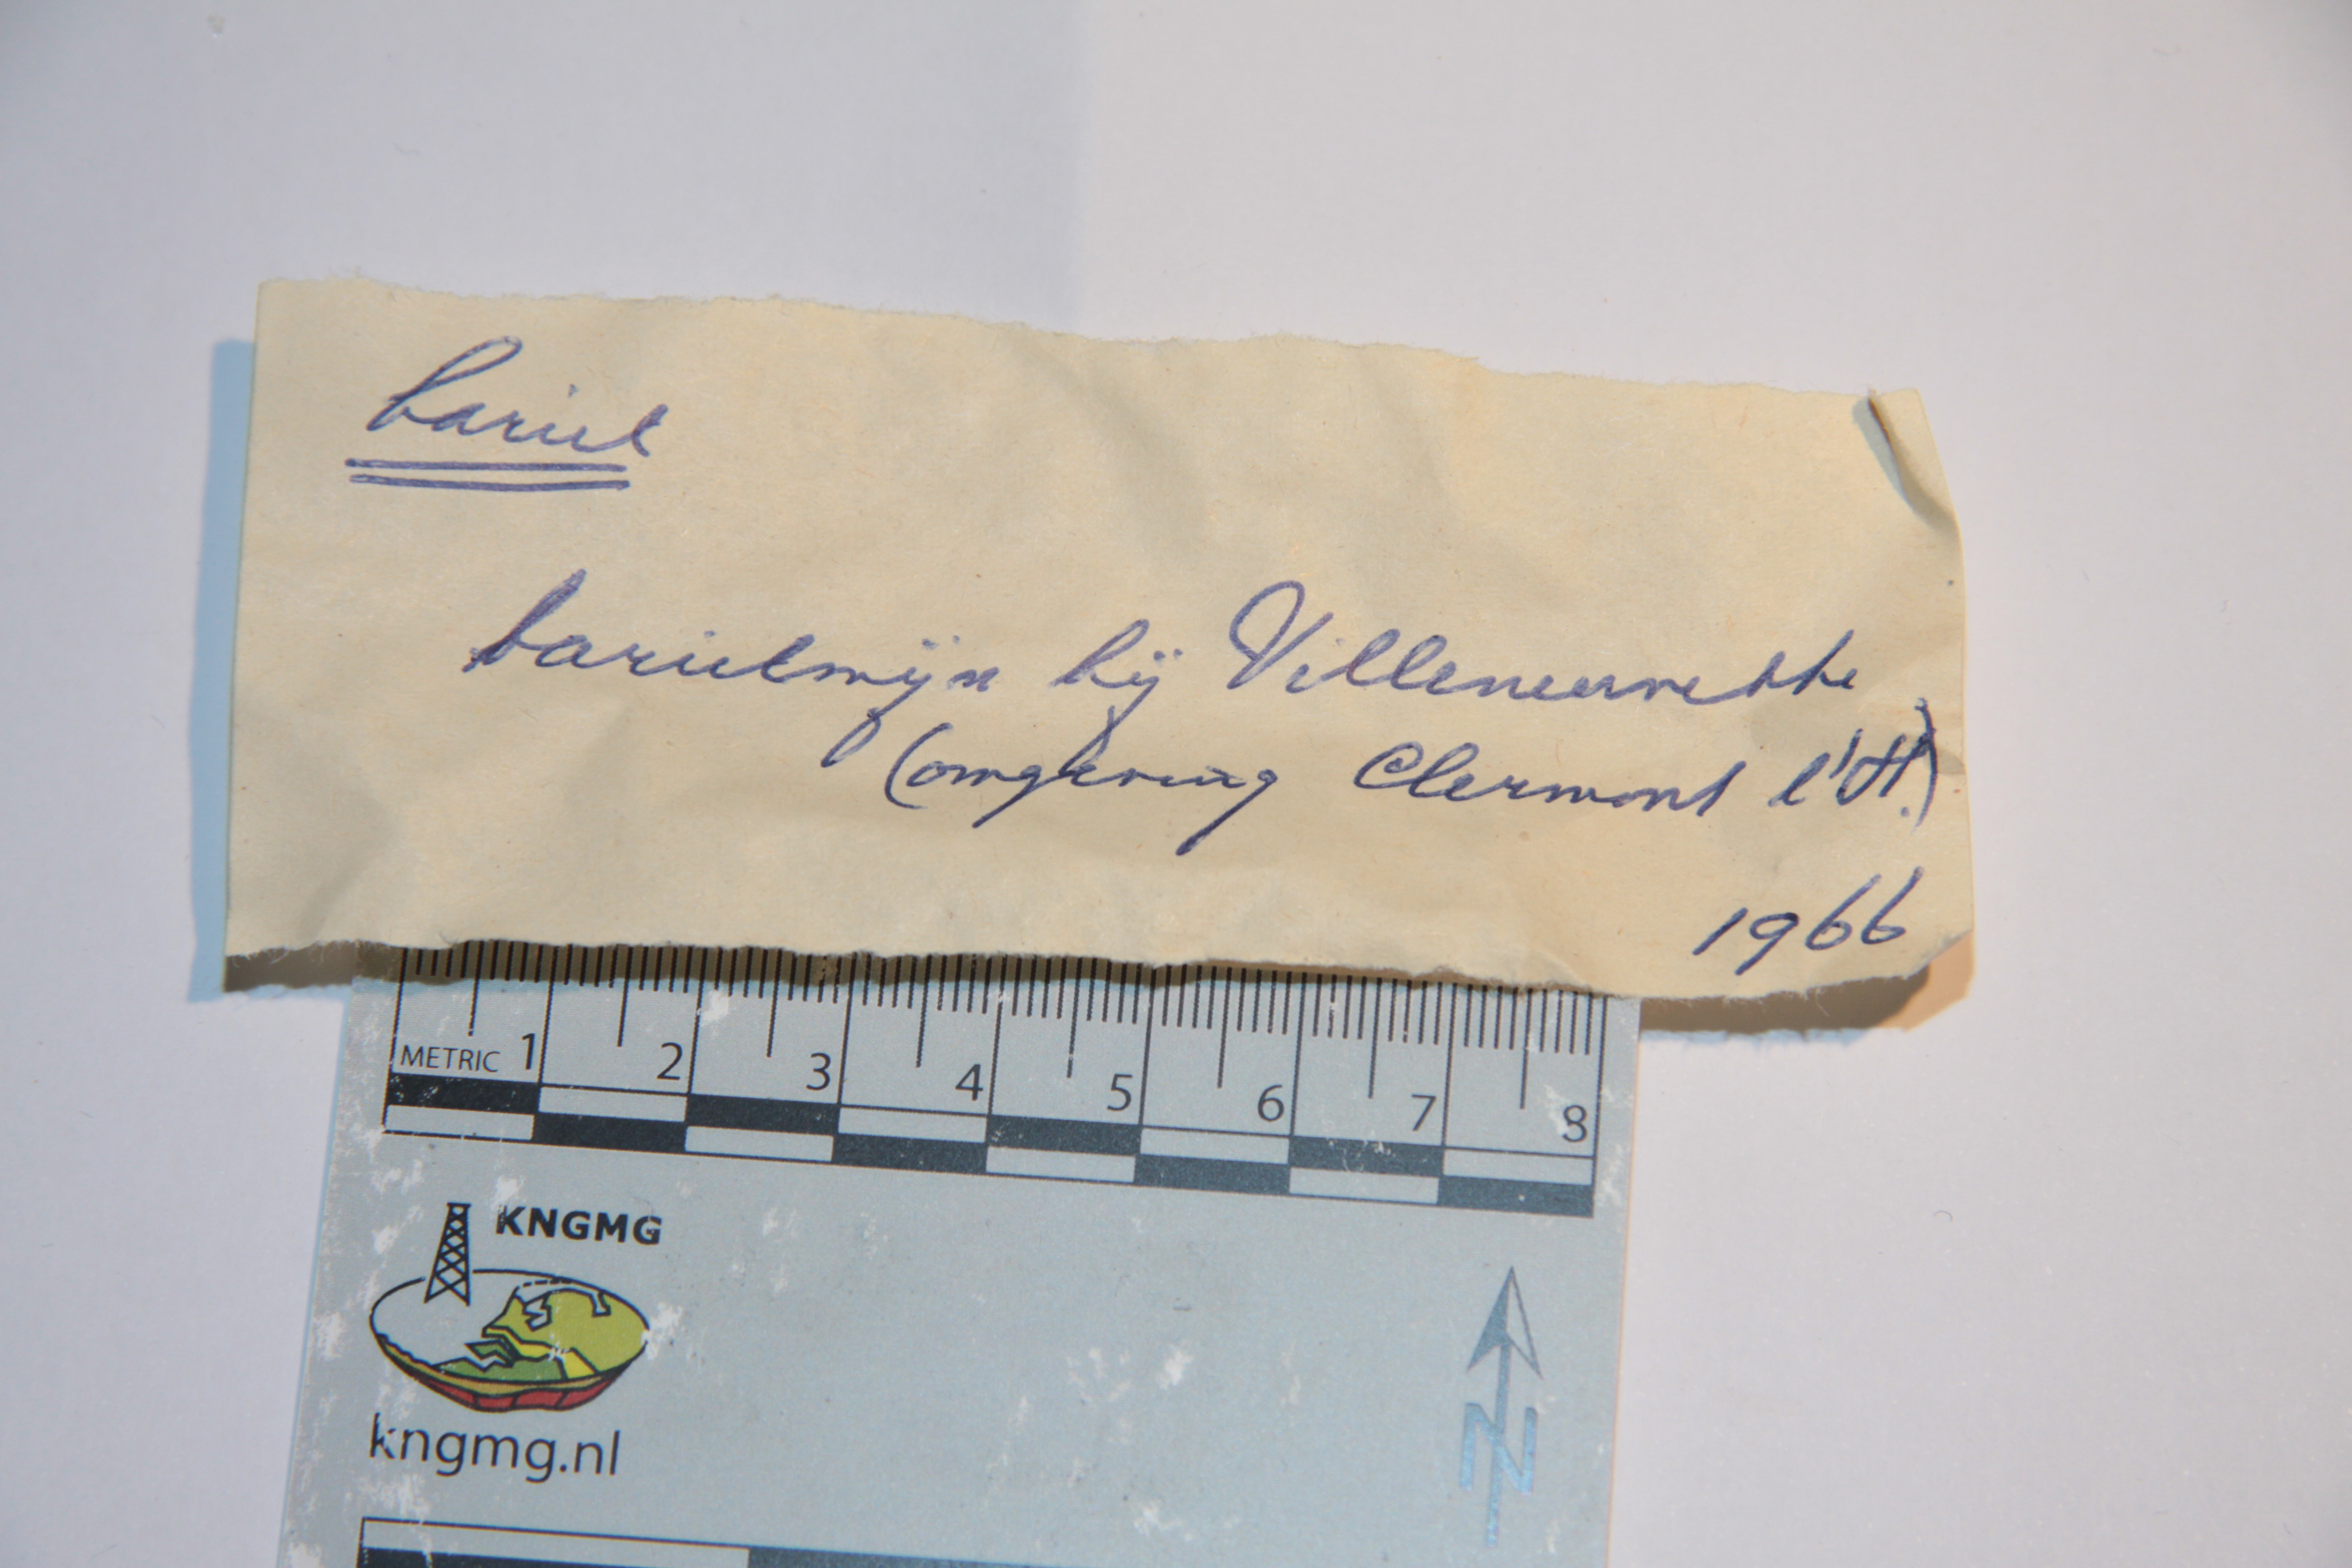 bariet
barietmijn bij Villeneuvette
(omgeving Clermont l'H.)
1966
METRIC 1 2 3 4 5 6 7 8
KNGMG
kngmg.nl
N